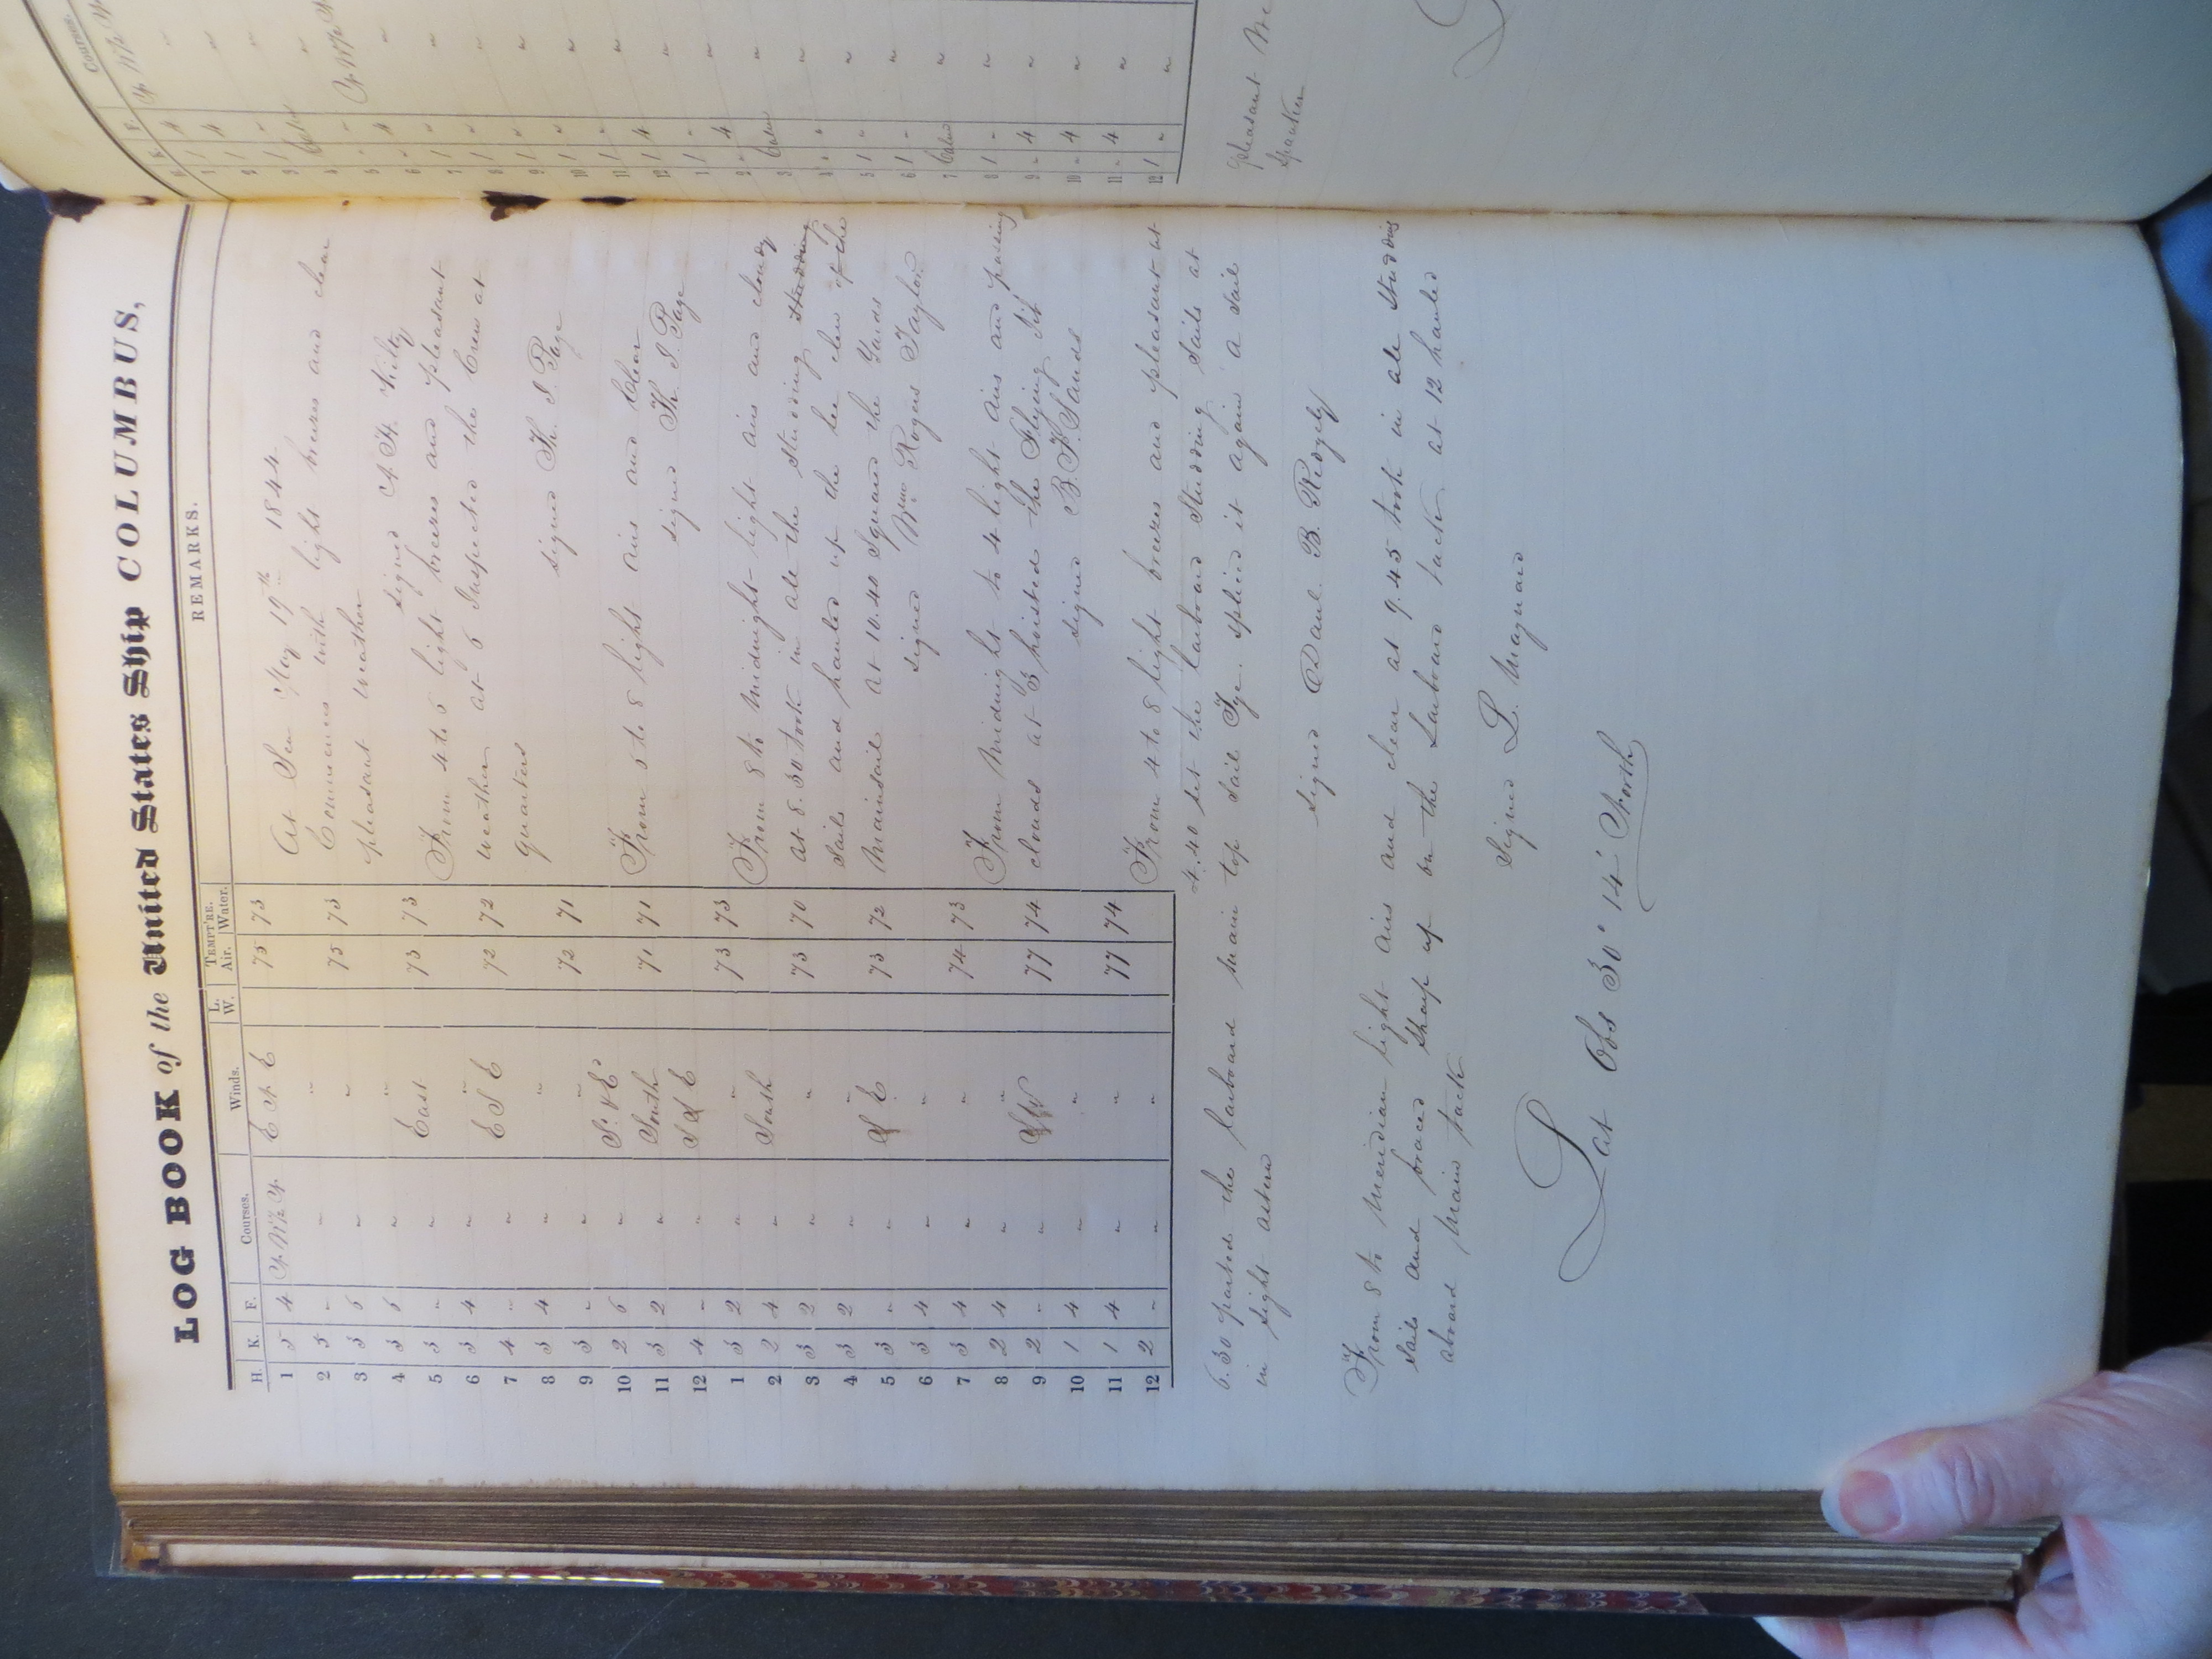 LOG BOOK of the United States Ship COLUMBUS,
H. K. F. Courses. Winds. L. W. TEMPT'RE. Air. Water. REMARKS.
1 5 4 N. W½ N. E N E 75 73
2 5 " " "
3 5 6 " " 75 73
4 5 6 " "
5 5 " " East 73 73
6 5 4 " "
7 4 " " E S E 72 72
8 3 4 " "
9 3 " " " 72 71
10 2 6 " S. & E.
11 3 2 " South 71 71
12 4 " " S S E
1 3 2 " " 73 73
2 2 4 " South
3 3 2 " " 73 70
4 3 2 "
5 3 " " S E 73 72
6 3 4 " "
7 3 4 " " 74 73
8 2 4 " "
9 2 " " S W 77 74
10 1 4 " "
11 1 4 " " 77 74
12 2 " " "
At Sea May 19th 1844.
Commences with light breezes and clear
pleasant weather
signed A. H. Kilty
From 4 to 6 light breezes and pleasant
weather at 6 Inspected the Crew at
quarters
signed Th. J. Page
From 6 to 8 light airs and clear
signed Th. J. Page
From 8 to Midnight light airs and cloudy
at 8.30 took in all the studding studding
sails and hauled up the lee clew of the
Mainsail at 10.40 Squared the Yards
signed Wm. Rogers Taylor
From Midnight to 4 light airs and passing
clouds at 3 hoisted the Flying Jib
signed B. F. Sands
From 4 to 8 light breezes and pleasant at
4.40 set the larboard Studding Sails at
6.30 parted the larboard main top sail Tye. spliced it again a sail
in sight astern
signed Danl. B. Ridgely
From 8 to Meridian light airs and clear at 9.45 took in all studding
sails and braced sharp up on the Larboard tack at 12 hauled
aboard Main tack
Signed L. Maynard
Lat Obs 30° 14' North
Courses.
H. K. F.
N. W½ N.
Calm
N. W½ N.
Calm
Calm
pleasant
Spanker